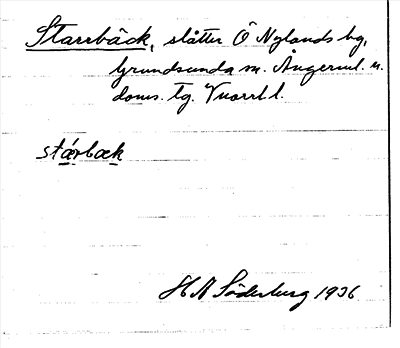 Starrbäck, slåtter Ö Nylands by,
Grundsunda sn. Ångerml. n.
doms. tg. Vnorrl l.
stárbæk
H A Söderberg 1936